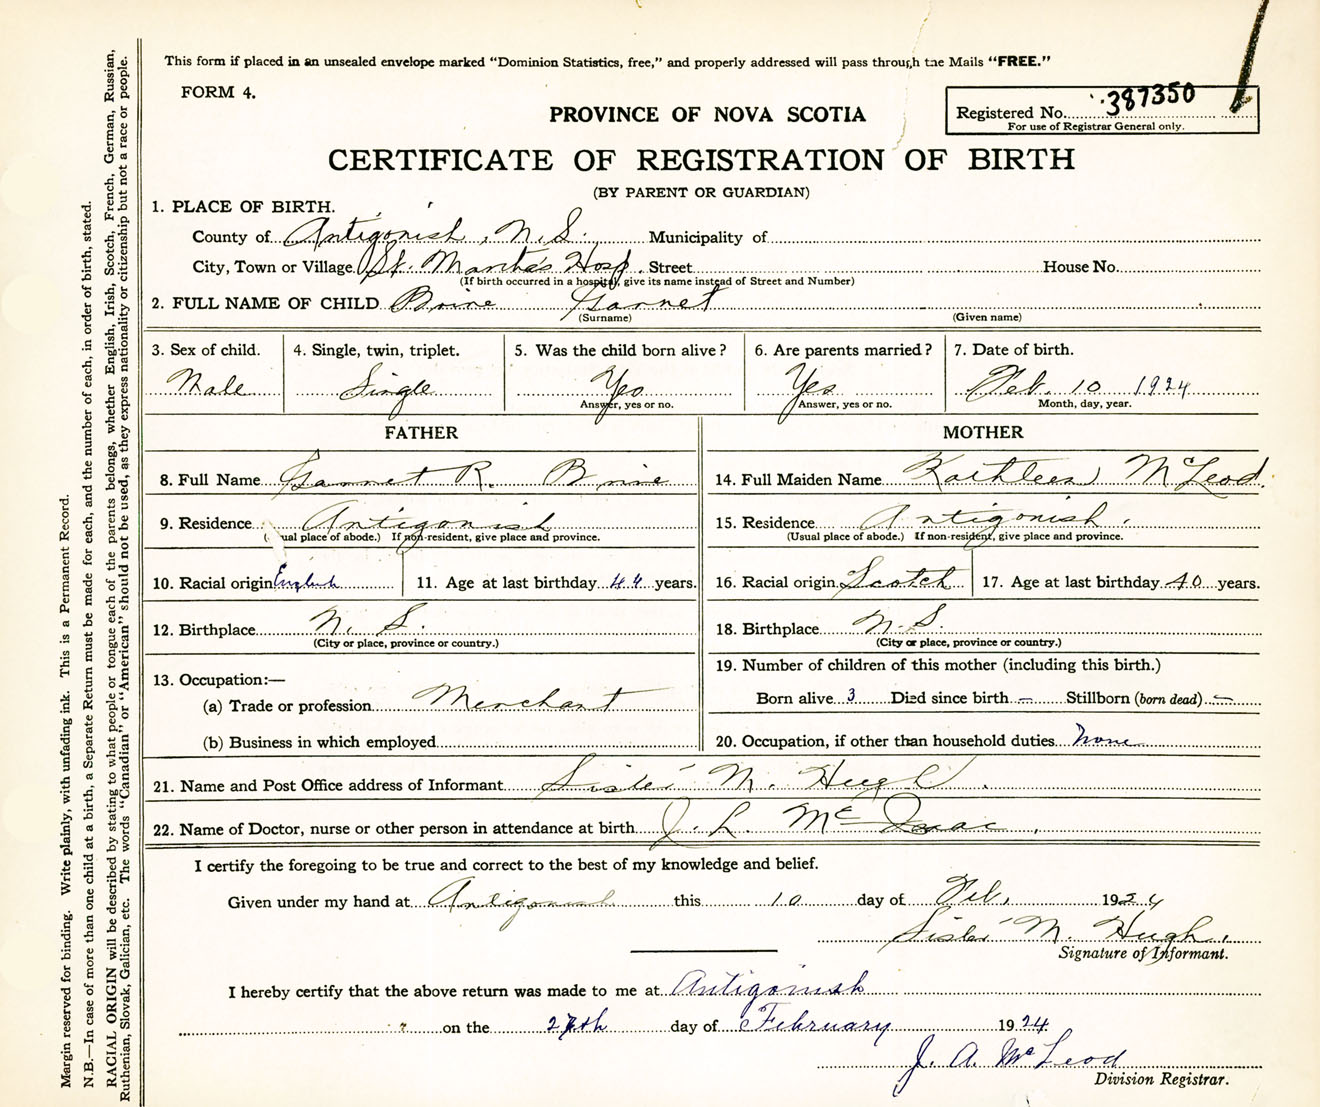 This form if placed in an unsealed envelope marked “Dominion Statistics, free,” and properly addressed will pass through the Mails “FREE.”
FORM 4.
Registered No. 387350
For use of Registrar General only.
PROVINCE OF NOVA SCOTIA
CERTIFICATE OF REGISTRATION OF BIRTH
(BY PARENT OR GUARDIAN)
1. PLACE OF BIRTH.
County of Antigonish, N. S. Municipality of
City, Town or Village St. Martha's Hosp. Street House No.
(If birth occurred in a hospital, give its name instead of Street and Number)
2. FULL NAME OF CHILD Brine Garnet
(Surname) (Given name)
3. Sex of child. 4. Single, twin, triplet. 5. Was the child born alive? 6. Are parents married? 7. Date of birth.
Male Single Yes Yes Feb. 10 1924
Answer, yes or no. Answer, yes or no. Month, day, year.
FATHER MOTHER
8. Full Name Garnet R. Brine 14. Full Maiden Name Kathleen McLeod.
9. Residence Antigonish 15. Residence Antigonish.
(Usual place of abode.) If non-resident, give place and province. (Usual place of abode.) If non-resident, give place and province.
10. Racial origin English 11. Age at last birthday 44 years. 16. Racial origin Scotch 17. Age at last birthday 40 years.
12. Birthplace N. S. 18. Birthplace N. S.
(City or place, province or country.) (City or place, province or country.)
13. Occupation:— 19. Number of children of this mother (including this birth.)
(a) Trade or profession Merchant Born alive 3 Died since birth – Stillborn (born dead) –
(b) Business in which employed 20. Occupation, if other than household duties none
21. Name and Post Office address of Informant Sister M. Hugh.
22. Name of Doctor, nurse or other person in attendance at birth J. L. McIsaac.
I certify the foregoing to be true and correct to the best of my knowledge and belief.
Given under my hand at Antigonish this 10 day of Feb. 1924
Sister M. Hugh.
Signature of Informant.
I hereby certify that the above return was made to me at Antigonish
on the day of February 1924
J. A. McLeod
Division Registrar.
Margin reserved for binding. Write plainly, with unfading ink. This is a Permanent Record.
N.B.—In case of more than one child at a birth, a Separate Return must be made for each, and the number of each, in order of birth, stated.
RACIAL ORIGIN will be described by stating to what people or tongue each of the parents belongs, whether English, Irish, Scotch, French, German, Russian,
Ruthenian, Slovak, Galician, etc. The words “Canadian” or “American” should not be used, as they express nationality or citizenship but not a race or people.